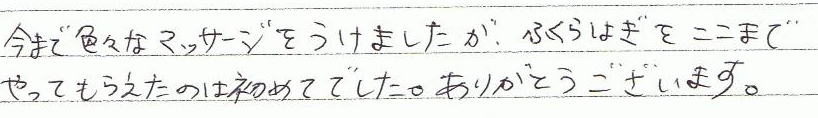 今まで色々なマッサージをうけましたが、ふくらはぎをここまで
やってもらえたのは初めてでした。ありがとうございます。